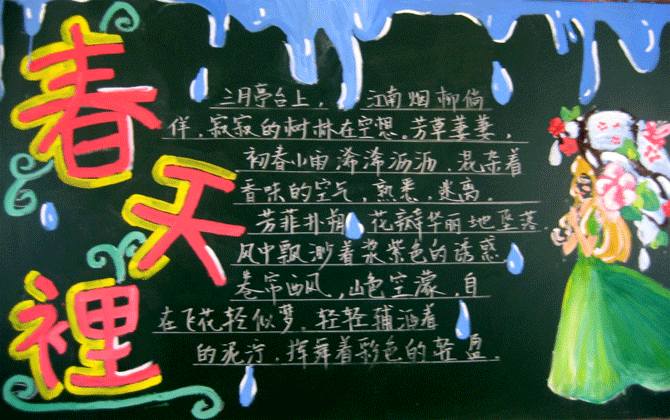 春天裡
三月亭台上，江南烟柳倘
佯，寂寂的树林在空想。芳草萋萋，
初春小雨浠浠沥沥，混杂着
香味的空气，熟悉，迷离。
芳菲扑朔，花瓣华丽地坠落.
风中飘渺着浆紫色的诱惑
卷帘西风，山色空濛，自
在飞花轻似梦，轻轻铺洒着
的泥泞，挥舞着彩色的轻盈。